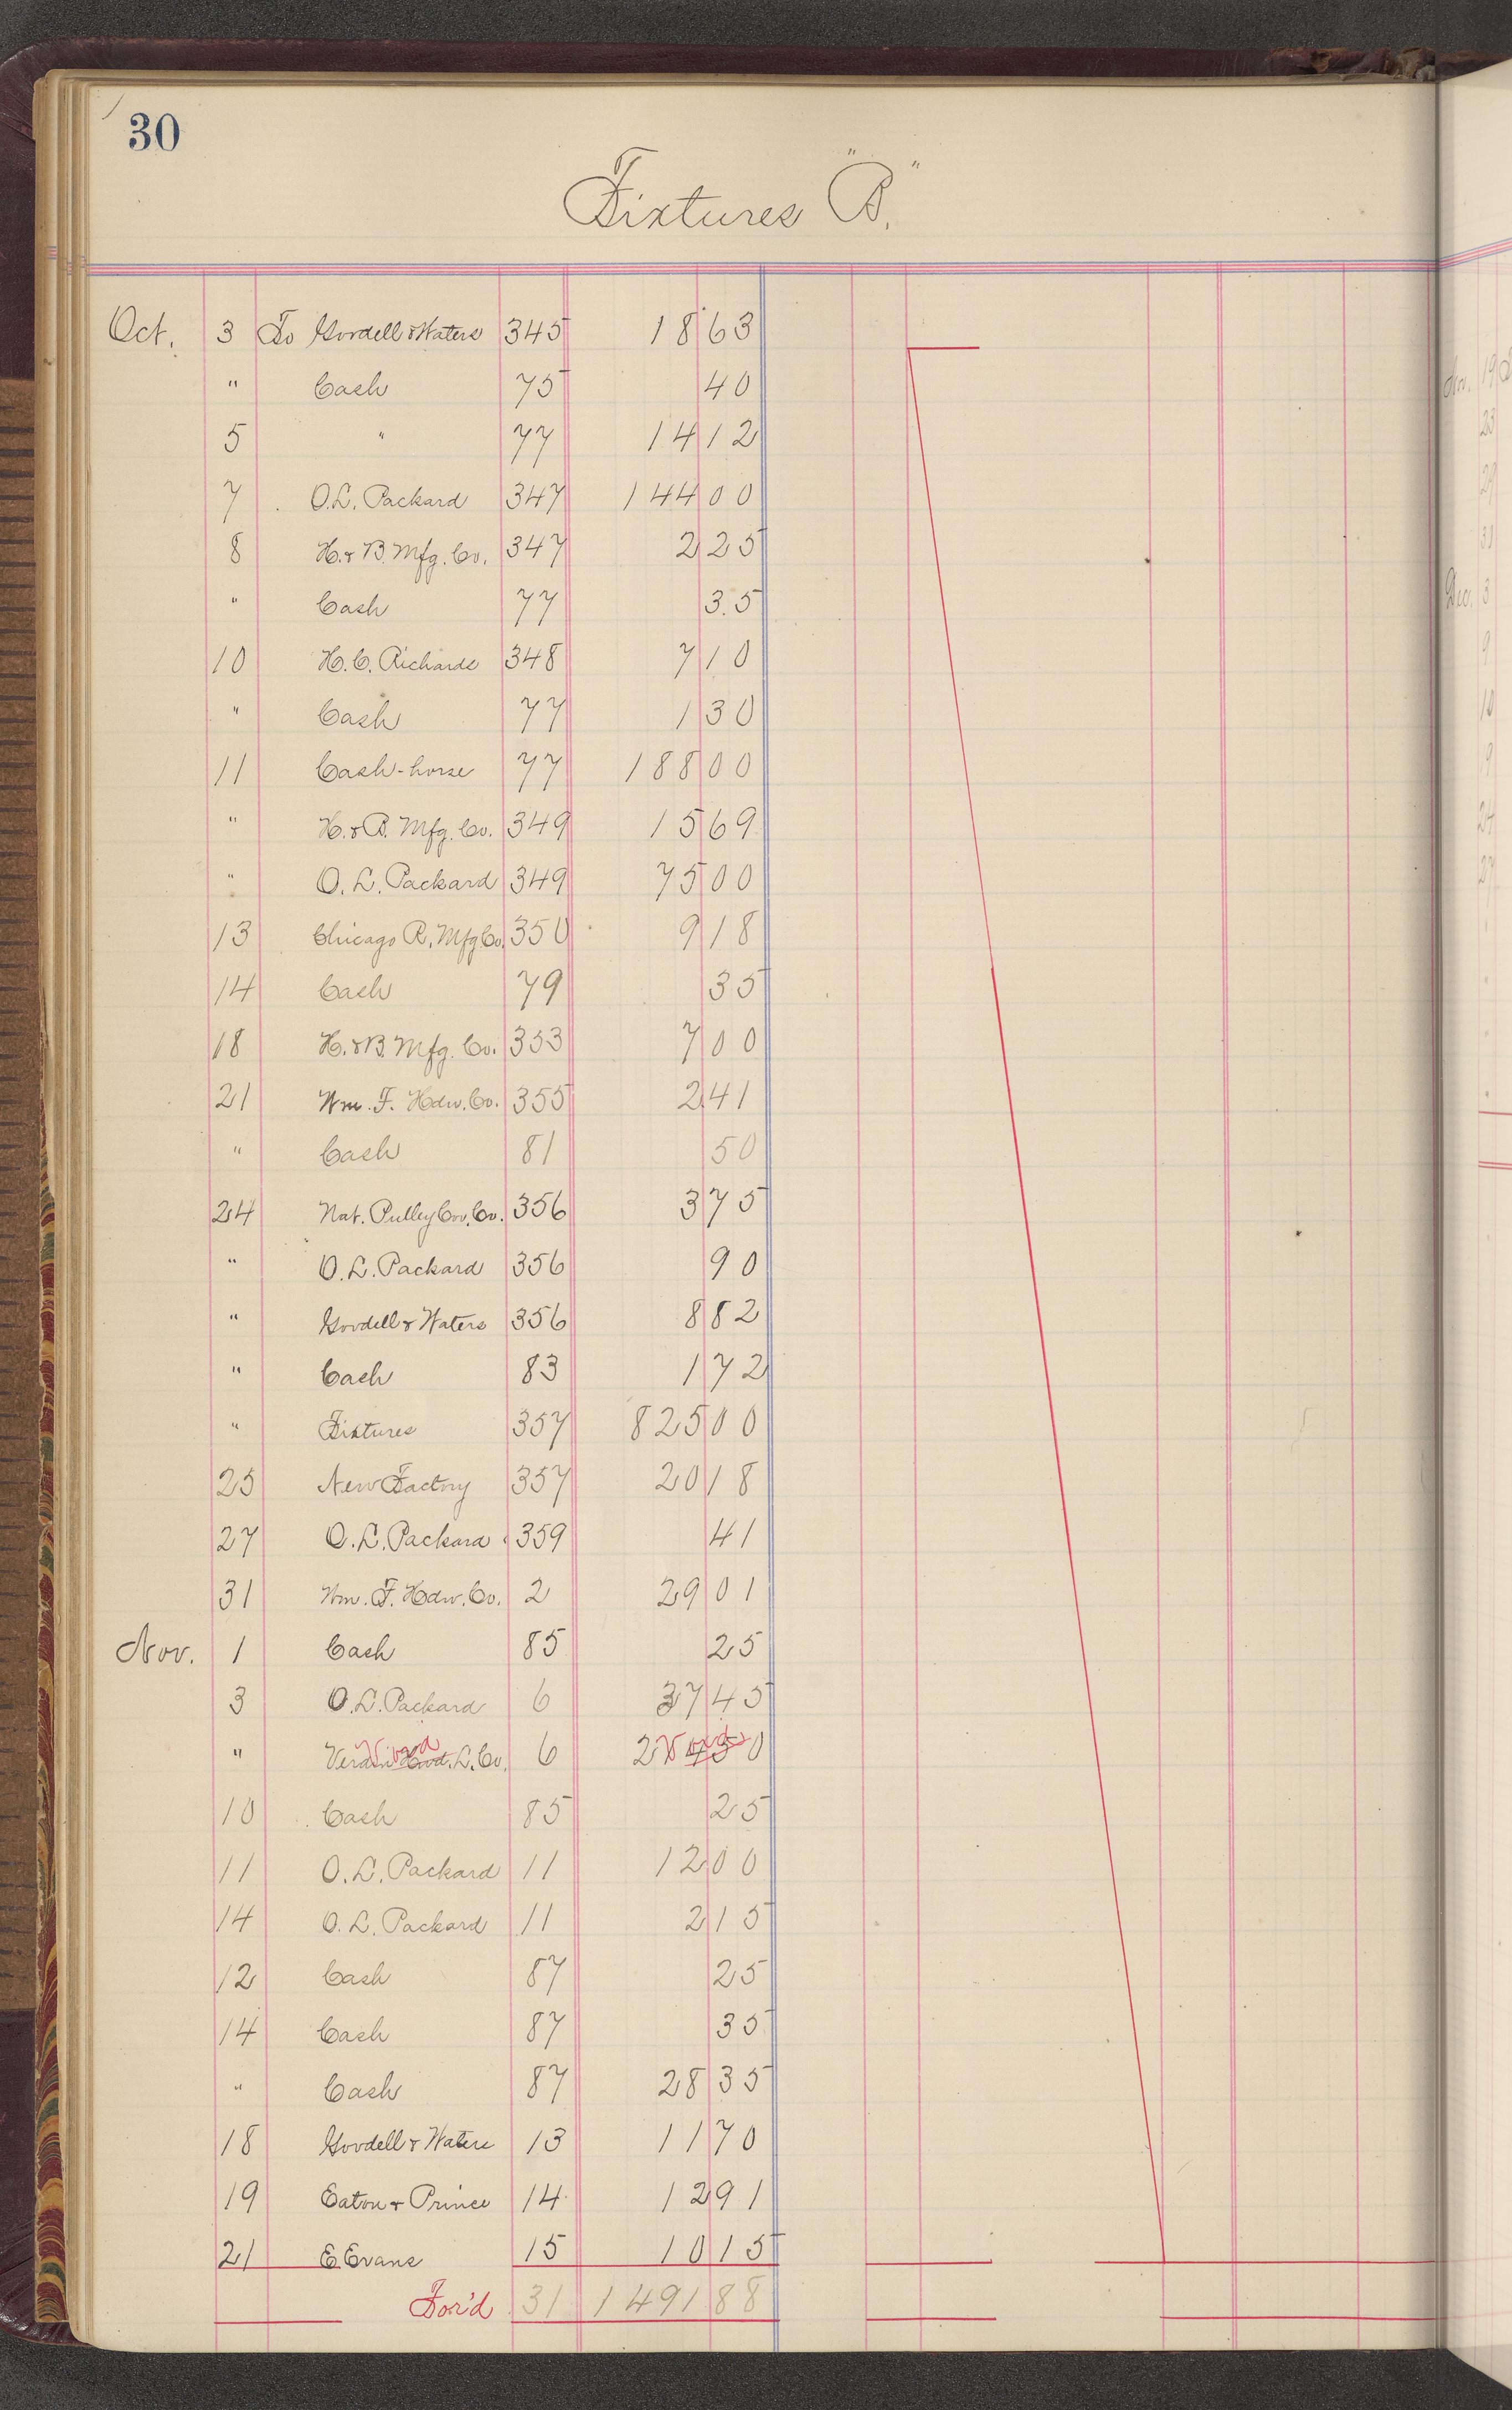 30
Fixtures "B."
Oct. 3 To Goodell & Waters 345 18 63
" Cash 75 40
5 " 77 14 12
7 O.L. Packard 347 144 00
8 H. & B. Mfg. Co. 347 2 25
" Cash 77 35
10 H.C. Richards 348 7 10
" Cash 77 1 30
11 Cash-horse 77 188 00
" H. & B. Mfg. Co. 349 15 69
" O.L. Packard 349 75 00
13 Chicago R. Mfg Co. 350 9 18
14 Cash 79 35
18 H. & B. Mfg. Co. 353 7 00
21 Wm. F. Hdw. Co. 355 2 41
" Cash 81 50
24 Nat. Pulley Cov. Co. 356 3 75
" O.L. Packard 356 90
" Goodell & Waters 356 8 82
" Cash 83 1 72
" Fixtures 357 825 00
25 New Factory 357 20 18
27 O.L. Packard 359 41
31 Wm. F. Hdw. Co. 2 29 01
Nov. 1 Cash 85 25
3 O.L. Packard 6 37 45
" L. Co. 6 Void
10 Cash 85 25
11 O.L. Packard 11 12 00
14 O.L. Packard 11 2 15
12 Cash 87 25
14 Cash 87 35
" Cash 87 28 35
18 Goodell & Waters 13 11 70
19 Eaton & Prince 14 12 91
21 E. Evans 15 10 15
For'd 31 1491 88
Nov. 19
23
29
31
Dec. 3
9
10
19
24
27